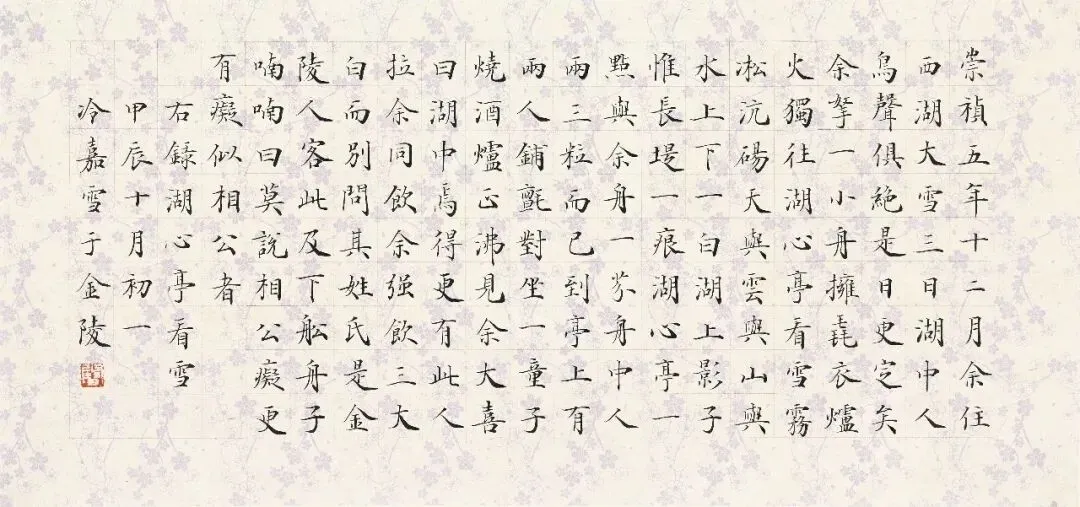 崇禎五年十二月余住
西湖大雪三日湖中人
鳥聲俱絶是日更定矣
余拏一小舟擁毳衣爐
火獨往湖心亭看雪霧
凇沆碭天與雲與山與
水上下一白湖上影子
惟長堤一痕湖心亭一
點與余舟一芥舟中人
兩三粒而已到亭上有
兩人鋪氈對坐一童子
燒酒爐正沸見余大喜
曰湖中焉得更有此人
拉余同飲余强飲三大
白而別問其姓氏是金
陵人客此及下舩舟子
喃喃曰莫說相公癡更
有癡似相公者
右錄湖心亭看雪
甲辰十月初一
冷嘉雪于金陵